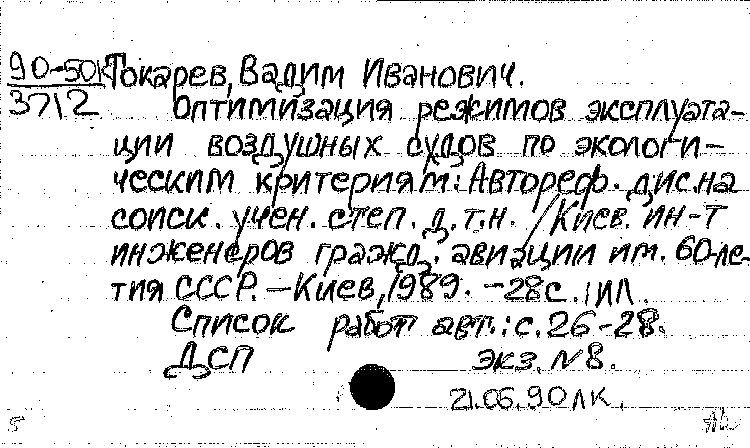 90-50к Токарев, Вадим Иванович.
3712 Оптимизация режимов эксплуата-
ции воздушных судов по экологи-
ческим критериям: Автореф. дис. на
соиск. учен. степ. д.т.н. /Киев. ин-т
инженеров гражд. авиации им. 60-ле-
тия СССР. - Киев, 1989. - 28с.: ил.
Список работ авт.: с. 26-28.
ДСП экз. №8.
21.06.90 ЛК.